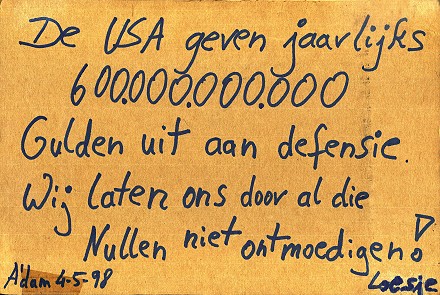 De USA geven jaarlijks
600.000.000.000
Gulden uit aan defensie.
Wij laten ons door al die
Nullen niet ontmoedigen!
A'dam 4-5-98
Loesje